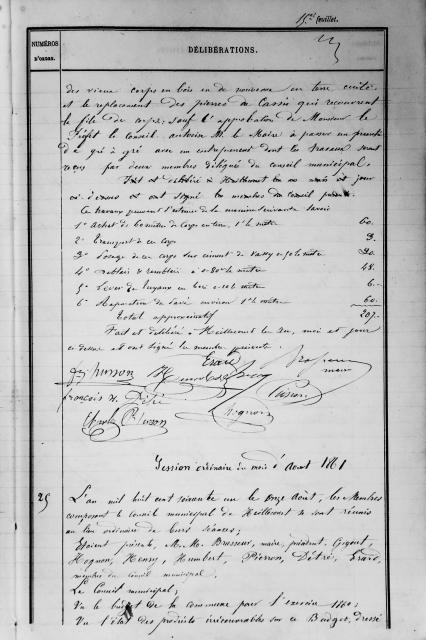 15me feuillet.
NUMÉROS
D'ORDRE.
DÉLIBÉRATIONS.
des vieux corps en bois en de nouveaux en terre cuite
et le replacement des pierres de Cassis qui recouvrent
la file de corps; sauf l'approbation de Monsieur le
Préfet le Conseil autorise M. le Maire à passer un
de gré à gré avec un entrepreneur dont les travaux seront
reçus par deux membres délégués du conseil municipal.
Fait et délibéré à Heillecourt les an mois et jour
ci-dessus et ont signé les membres du Conseil présents.
Ces travaux peuvent s'estimer de la manière suivante savoir
1° Achat de 60 mètres de Corps en terre, 1f le mètre 60.
2° Transport de ces corps 3.
3° Posage de ces corps sur ciment de Vassy à 0.50 le mètre 30.
4° Déblais & remblais à 0.80 le mètre 48.
5° Lever de tuyaux en bois 0.10 le mètre 6.
6° Réparation de Pavé environ 1f le mètre 60.
Total approximatif 207.
Fait et délibéré à Heillecourt les an, mois et jour
ci-dessus et ont signé les membres présents.
Husson
Erard
Brasseur
maire
françois
Détré
Pierron
Hognon
Husson
Session ordinaire du mois d'Août 1861
25 L'an mil huit cent soixante un le onze août, les Membres
composant le Conseil municipal de Heillecourt se sont réunis
au lieu ordinaire de leurs séances;
Etaient présents, M.M. Brasseur, maire, président,
Hognon, Henry, Humbert, Pierron, Détré, Erard,
membres du conseil municipal.
Le Conseil municipal;
Vu le budget de la commune pour l'exercice
Vu l'état des produits irrécouvrables sur ce Budget, dressé